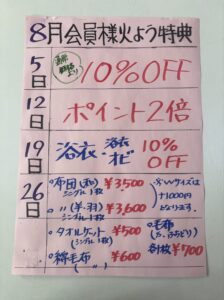 8月会員様火よう特典
5日 10%OFF
12日 ポイント2倍
19日 浴衣 浴衣オビ 10%OFF
26日
○布団(和) ¥3,500
シングル1枚
○〃(羊・羽) ¥3,600
シングル1枚
○タオルケット ¥500
(シングル1枚)
○綿毛布 ¥600
(〃)
Wサイズは
+1000円
となります。
○毛布
¥700